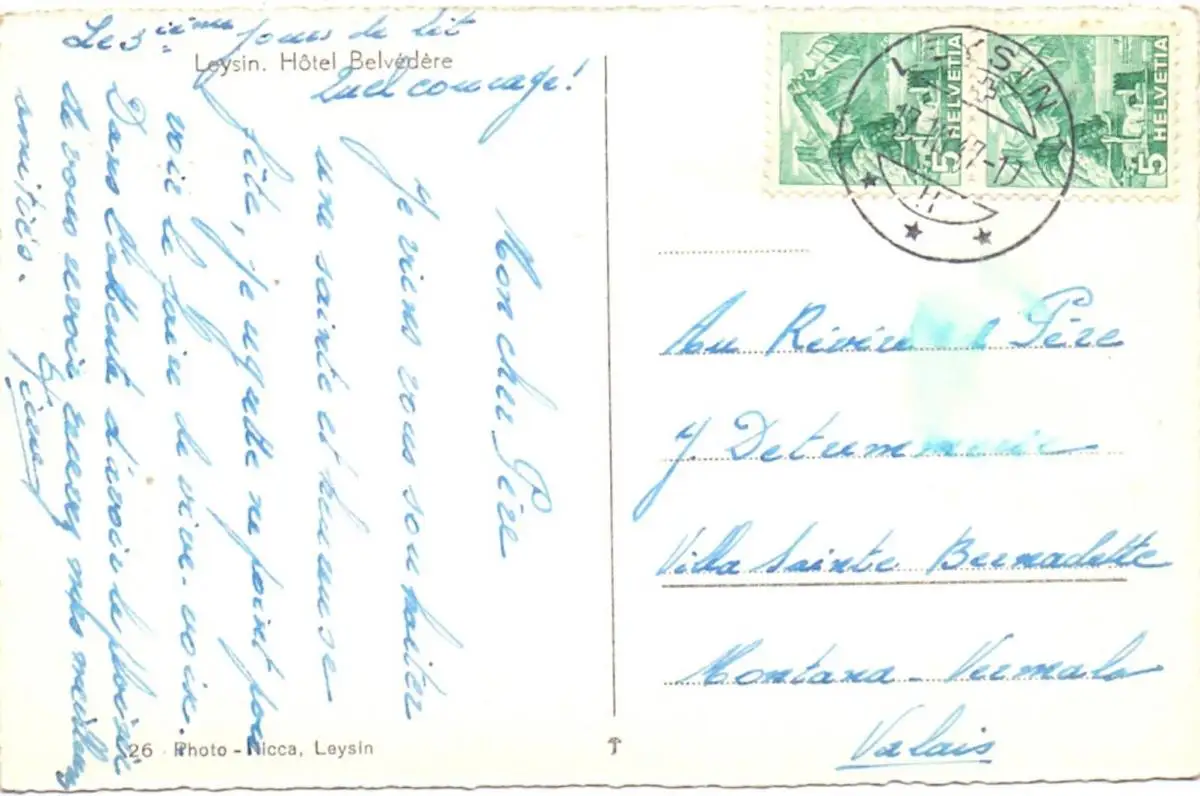 Le 3ième jours de lit
Quel courage !
Leysin. Hôtel Belvédère
Mon cher Père
Je viens vous souhaiter
une sainte et heureuse
fête, je regrette ne point pou
voir le faire de vive-voix.
Dans l'attente d'avoir le plaisir
de vous revoir recevez mes meilleures
amitiés.
26 Photo - Nicca, Leysin
HELVETIA 5
HELVETIA 5
LEYSIN
Au Révérend Père
J. Detummerie
Villa Sainte Bernadette
Montana-Vermala
Valais